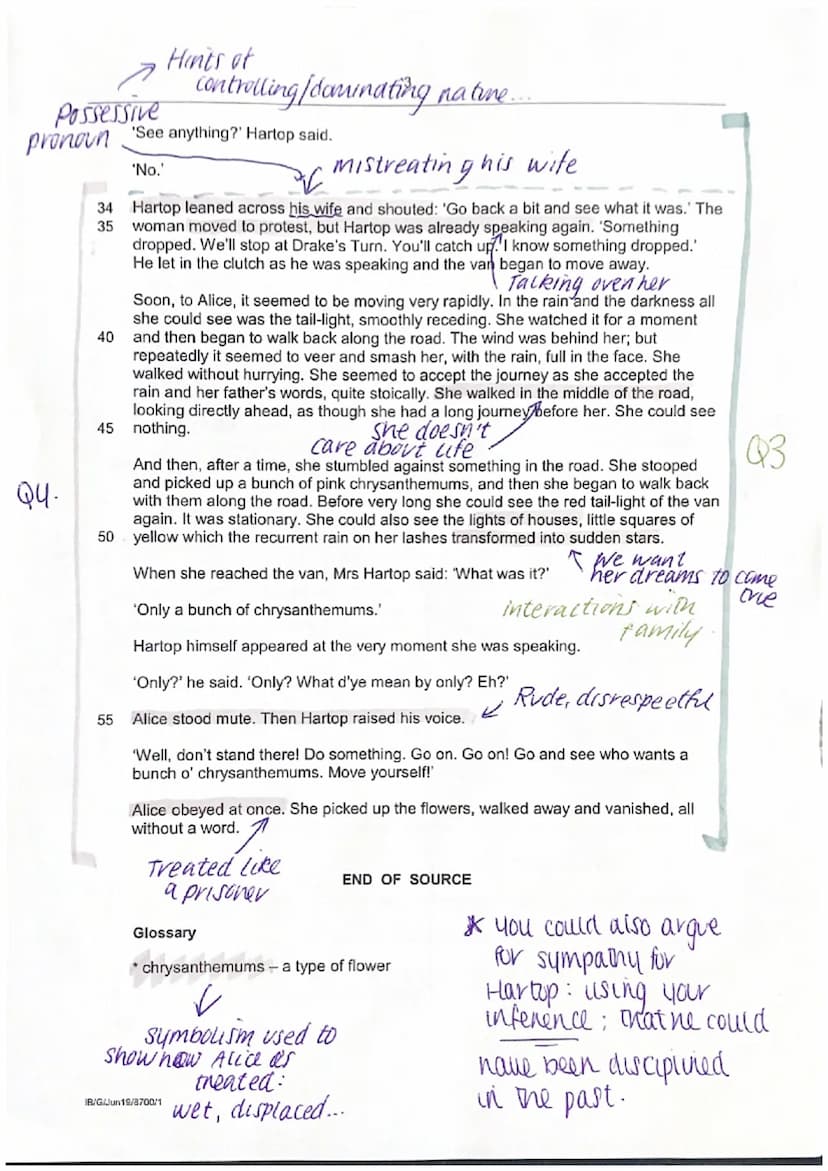 Hints of
controlling/dominating nature...
3
Possessive
pronoun
'See anything?' Hartop said.
mistreating his wife
'No.'
34 Hartop leaned across his wife and shouted: 'Go back a bit and see what it was.' The
35 woman moved to protest, but Hartop was already speaking again. 'Something
dropped. We'll stop at Drake's Turn. You'll catch up. I know something dropped.'
He let in the clutch as he was speaking and the van began to move away.
Talking over her
Soon, to Alice, it seemed to be moving very rapidly. In the rain and the darkness all
she could see was the tail-light, smoothly receding. She watched it for a moment
40 and then began to walk back along the road. The wind was behind her; but
repeatedly it seemed to veer and smash her, with the rain, full in the face. She
walked without hurrying. She seemed to accept the journey as she accepted the
rain and her father's words, quite stoically. She walked in the middle of the road,
looking directly ahead, as though she had a long journey before her. She could see
45 nothing.
she doesn't
care about life
Q3
And then, after a time, she stumbled against something in the road. She stooped
and picked up a bunch of pink chrysanthemums, and then she began to walk back
Q4.
with them along the road. Before very long she could see the red tail-light of the van
again. It was stationary. She could also see the lights of houses, little squares of
50 yellow which the recurrent rain on her lashes transformed into sudden stars.
We want
her dreams to come
true
When she reached the van, Mrs Hartop said: 'What was it?'
'Only a bunch of chrysanthemums.'
interactions with
family.
Hartop himself appeared at the very moment she was speaking.
'Only?' he said. 'Only? What d'ye mean by only? Eh?'
Rude, disrespectful
55 Alice stood mute. Then Hartop raised his voice.
'Well, don't stand there! Do something. Go on. Go on! Go and see who wants a
bunch o' chrysanthemums. Move yourself!'
Alice obeyed at once. She picked up the flowers, walked away and vanished, all
without a word.
Treated like
a prisoner
END OF SOURCE
Glossary
* chrysanthemums – a type of flower
symbolism used to
show how Alice is
treated:
wet, displaced...
* you could also argue
for sympathy for
Hartop: using your
inference; that he could
have been disciplined
in the past.
IB/G/Jun19/8700/1